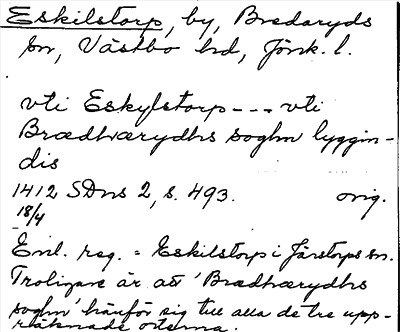 Eskilstorp, by, Bredaryds
sn, Västbo hd, Jönk. l.
vti Eskylstorp - - - vti
Brædhærydhs soghn lyggin-
dis
1412 SDns 2, s. 493. orig.
18/4
Enl. reg. = Eskilstorp i Järstorps sn.
Troligare är att 'Brædhærydhs
soghn' hänför sig till alla de tre upp-
räknade orterna.